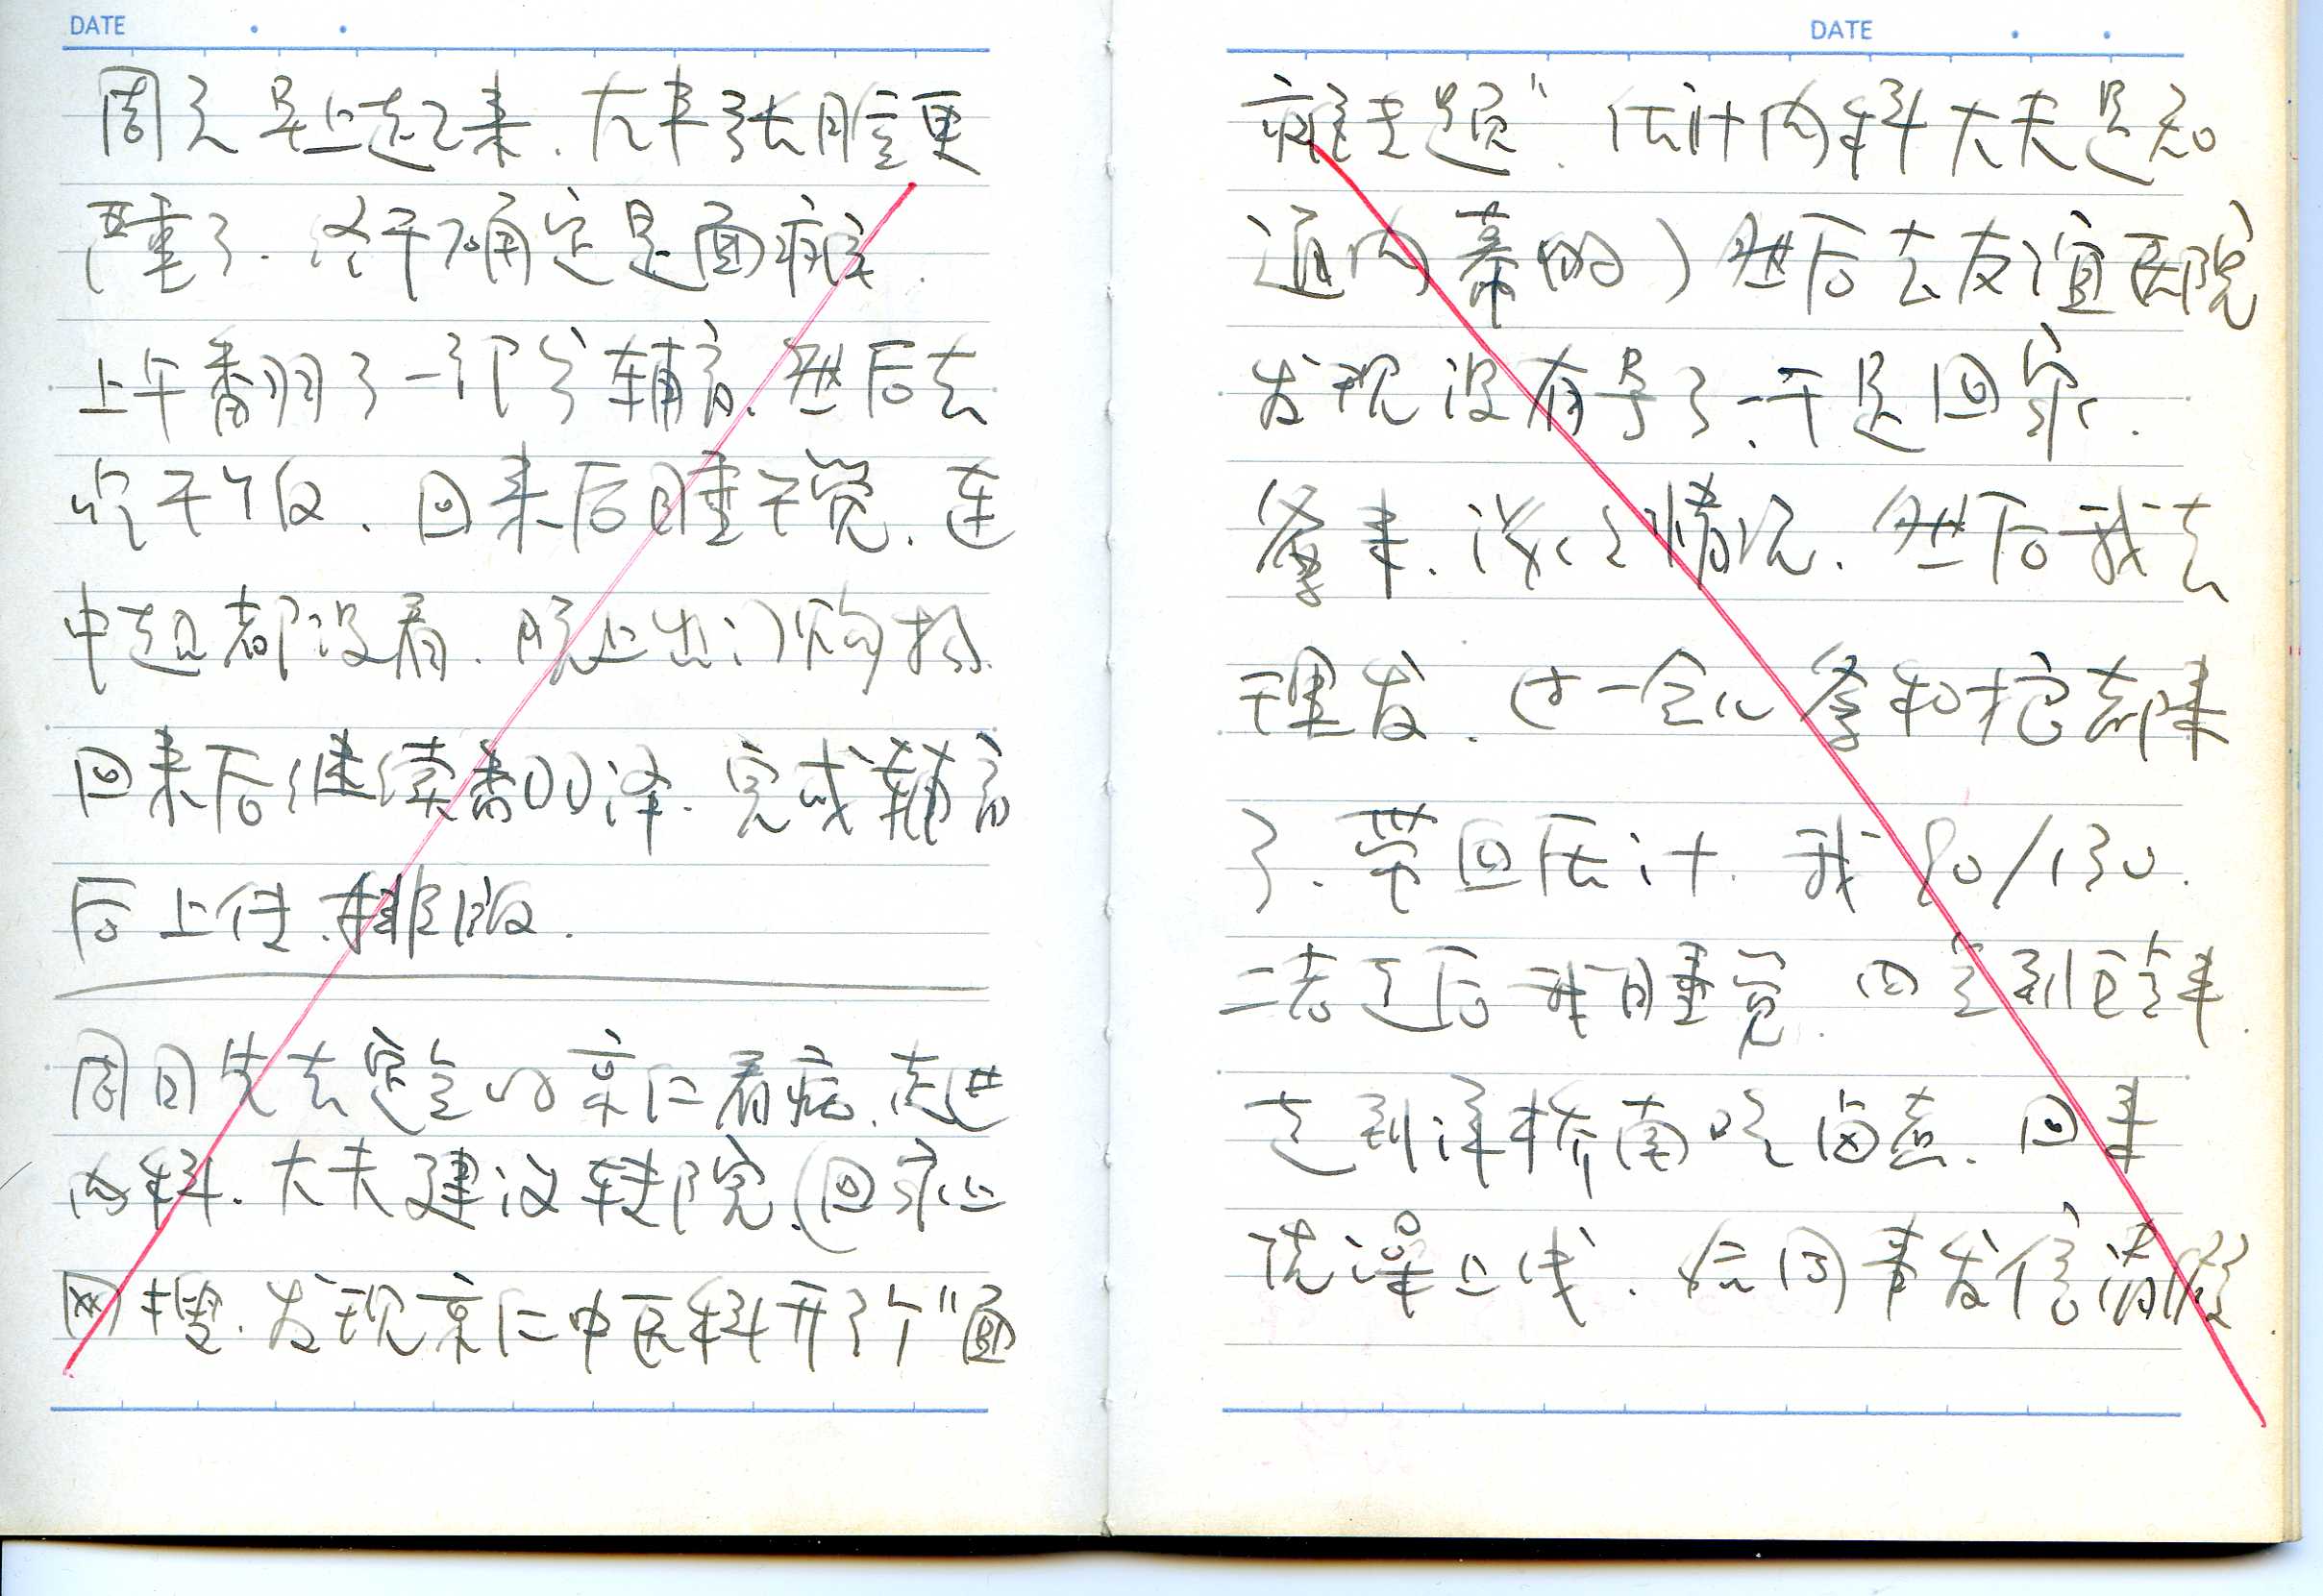 DATE
周六早上起来.左半张脸更
严重了.终于确定是面瘫.
上午翻了一部分辅育.然后去
吃午饭.回来后睡午觉.连
中超都没看.晚上出门购物.
回来后继续翻译.完成辅育
后上传.排版.
周日先去定点的京仁看病.走进
内科.大夫建议转院.(回家上
网搜.发现京仁中医科开了个"面
DATE
瘫专题".估计内科大夫是知
道内幕的)然后去友谊医院
发现没有号了.于是回家.
爹来.说了情况.然后我去
理发.过一会儿爹和 都来
了.带回压计.我80/130.
二老走后我睡觉.四点到五点半.
走到洋桥南吃卤煮.回来
洗澡上线.给同事发信请假.